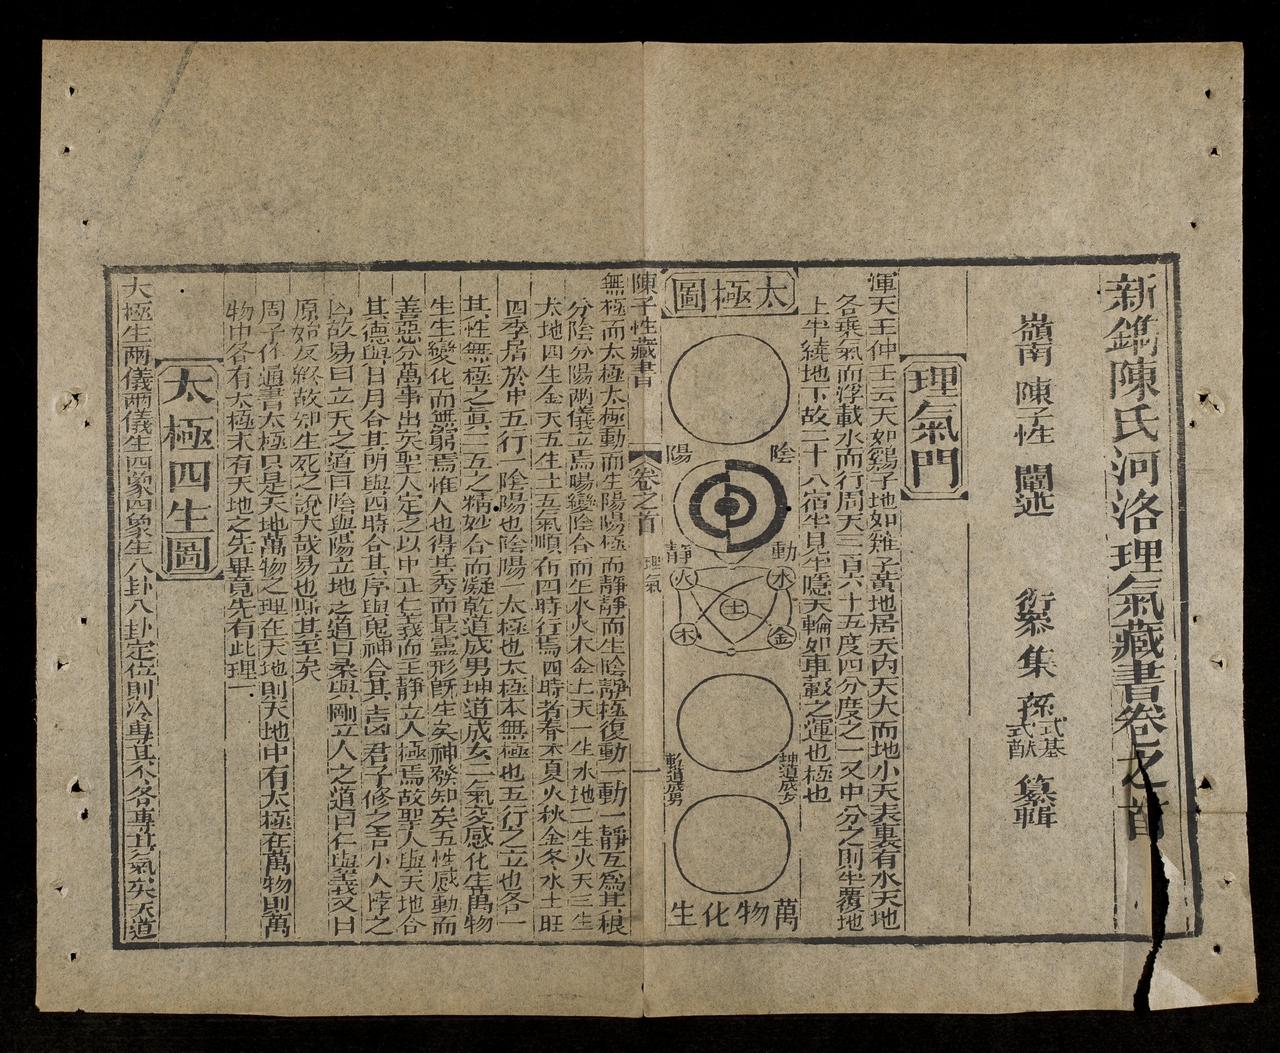 新鐫陳氏河洛理氣藏書卷之首
嶺南 陳子性 闡述
衍慕 集 孫 式基 式猷 纂輯
理氣門
渾天王仲王云天如鷄子地如雞子黃地居天內天大而地小天表裏有水天地
各乘氣而浮載水而行周天三百六十五度四分度之一又中分之則半覆地
上半繞地下故二十八宿半見半隱天輪如車轂之運也極也
太極圖
陰
陽
動
靜
水
火
土
金
木
坤道成女
乾道成男
萬物化生
陳子性藏書
卷之首
理氣
一
無極而太極太極動而生陽陽極而靜靜而生陰靜極復動一動一靜互爲其根
分陰分陽兩儀立焉陽變陰合而生水火木金土天一生水地二生火天三生
木地四生金天五生土五氣順布四時行焉四時者春木夏火秋金冬水土旺
四季居於中五行一陰陽也陰陽一太極也太極本無極也五行之立也各一
其性無極之眞二五之精妙合而凝乾道成男坤道成女二氣交感化生萬物
生生變化而無窮焉惟人也得其秀而最靈形旣生矣神發知矣五性感動而
善惡分萬事出矣聖人定之以中正仁義而主靜立人極焉故聖人與天地合
其德與日月合其明與四時合其序與鬼神合其吉凶君子修之吉小人悖之
凶故易曰立天之道曰陰與陽立地之道曰柔與剛立人之道曰仁與義又曰
原始反終故知生死之說大哉易也斯其至矣
周子作通書太極只是天地萬物之理在天地則天地中有太極在萬物則萬
物中各有太極未有天地之先畢竟先有此理一
太極四生圖
太極生兩儀兩儀生四象四象生八卦八卦定位則冷專其公各專其氣矣天道